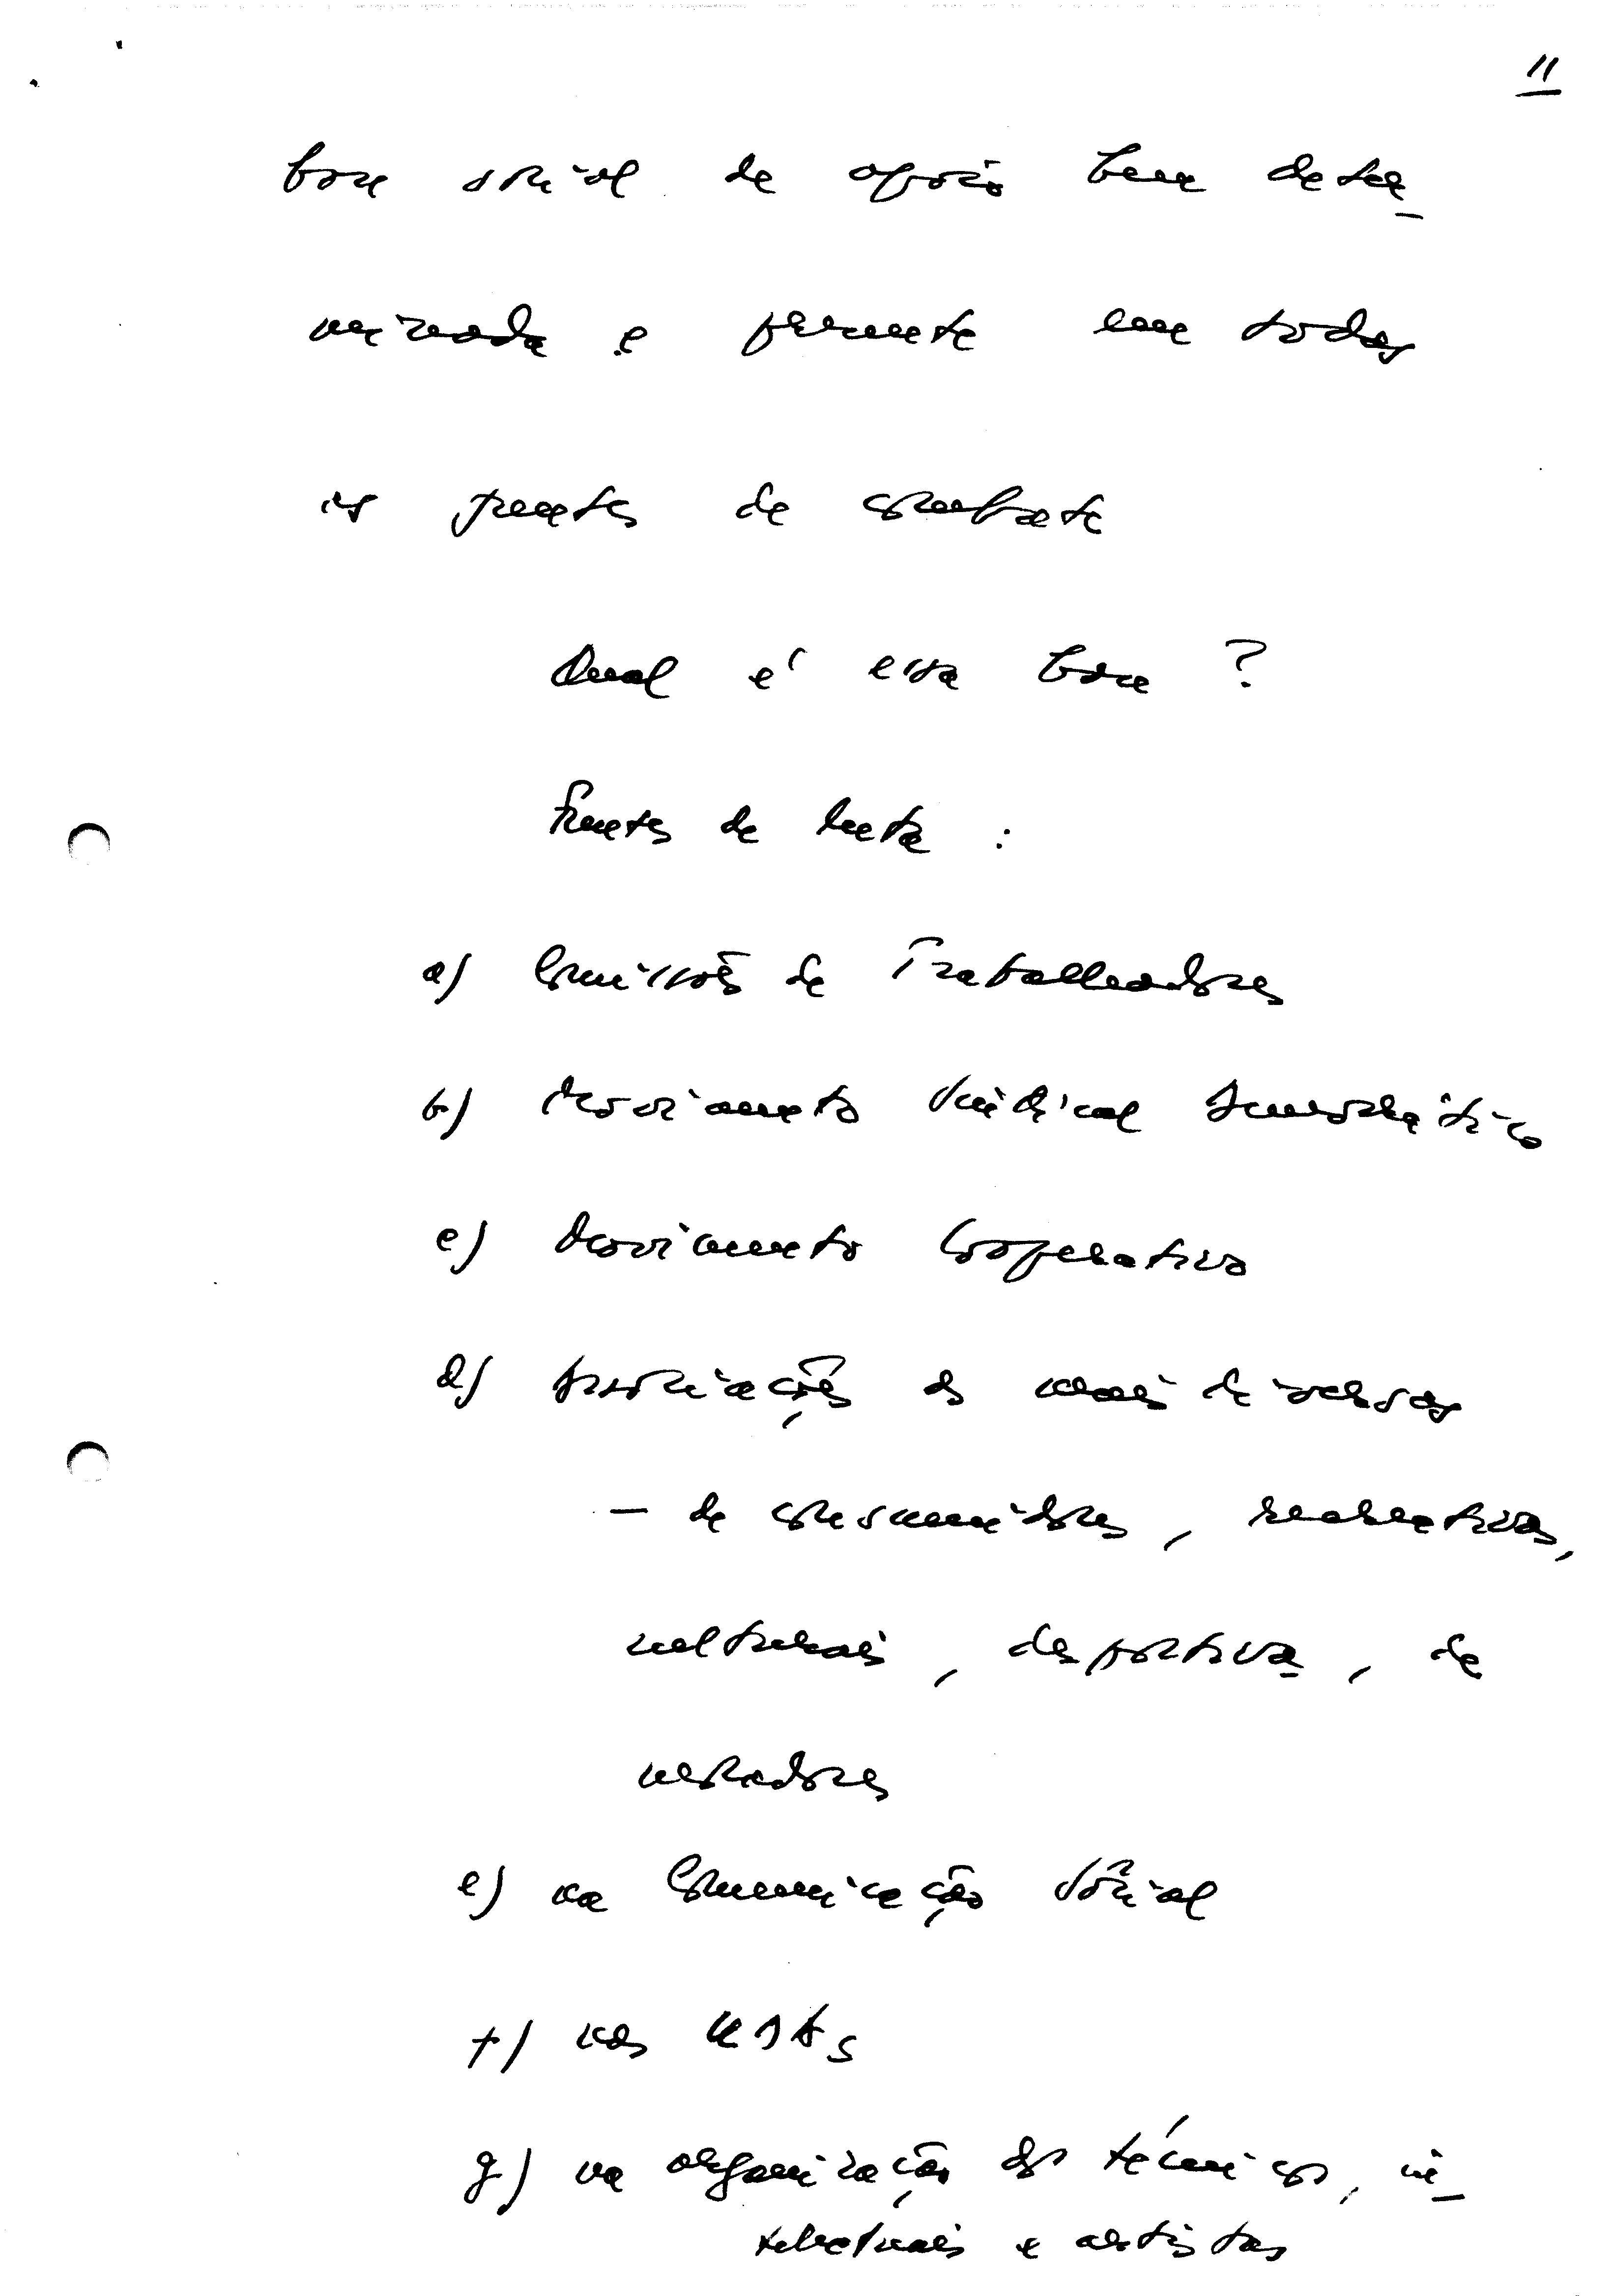 11
base social de apoio bem deter_
minada e presente em todas
as frentes de combate
Qual é essa base ?
Frentes de luta :
a) Comissões de Trabalhadores
b) Movimento Sindical Democrático
c) Movimento Cooperativo
d) Associações as mais diversas
- de consumidores, recreativas,
culturais, desportivas, de
moradores
e) na Comunicação Social
f) nas
g) na organização dos técnicos, in_
telectuais e artistas